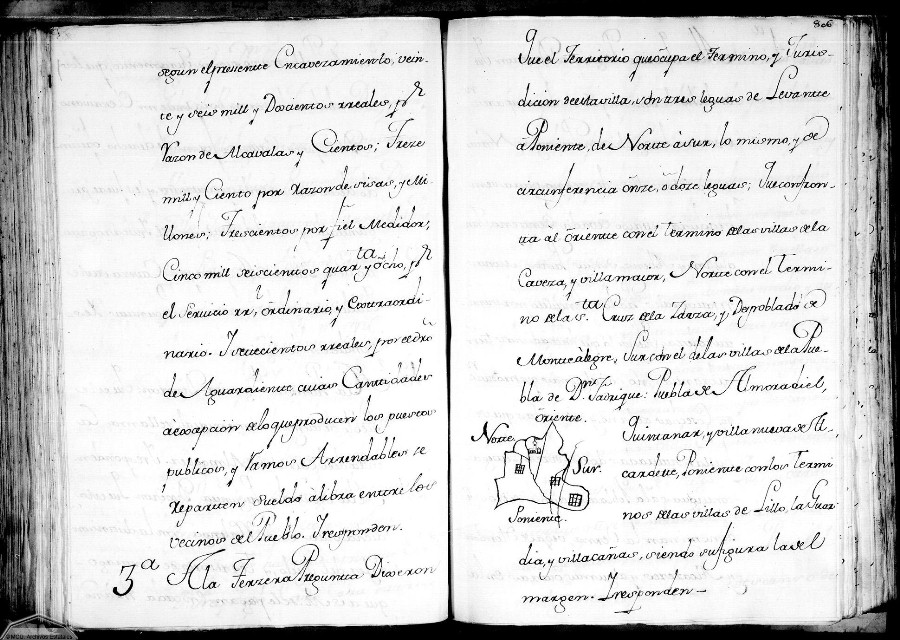 segun el pressente Encavezamiento, vein-
te y seis mill y Doscientos rreales, pr
Razon de Alcavalas y Cientos; Treze
mill y Ciento por Razon de sisas, y Mi-
llones; Trescientos por fiel Medidor;
Cinco mill seiscientos quarta y ocho, pr
el Servicio rrl, ordinario, y Extraordi-
nario. Y settecientos rreales, por el dro
de Aguardiente cuias Cantidades
a excepcion de lo que producen los puestos
publicos, y Ramos Arrendables se
Reparten sueldo a libra entre los
vecinos del Pueblo. Y responden.
3a A la Terzera Pregunta Dixeron
806
Que el Territorio que ocupa el Termino, y Juris-
dicion de esta villa, son tres leguas de Levante
a Poniente, de Norte à sur, lo mismo, y de
circunferencia onze, o doze leguas; Que confron-
ta al oriente con el termino de las villas de la
Caveza, y villamaior, Norte con el Termi-
no de la Sta. Cruz de la Zarza, y Despoblado de
Montealegre, Sur con el de las villas de la Pue-
bla de Dn. Fadrique: Puebla de Almoradiel,
Quintanar, y villanueva de Al-
cardete, Poniente con los Termi
nos de las villas de Lillo, la Guar-
dia, y villacañas, siendo su figura la del
margen. Y responden-
Oriente.
Norte
Sur.
Poniente.
©MCD. Archivos Estatales